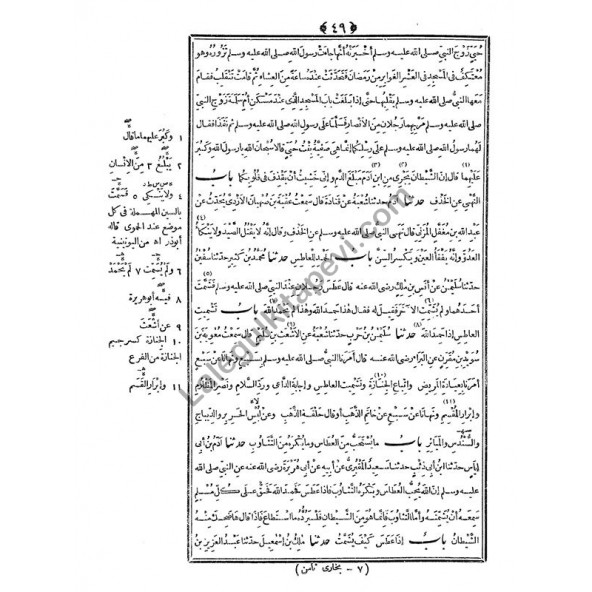 ﴿٤٩﴾
حُيَيٍّ زَوْجَ النبيِّ صلى الله عليه وسلم أخْبَرَتْهُ أنَّها جاءَتْ رسولَ الله صلى الله عليه وسلم تَزُورُهُ وهو
مُعْتَكِفٌ فى المسجِدِ فى العَشْرِ الغَوَابِرِ مِنْ رَمَضَانَ فَتَحَدَّثَتْ عِنْدَهُ ساعَةً مِنَ العِشاءِ ثُمَّ قامَتْ تَنْقَلِبُ فقام
مَعَها النبىُّ صلى الله عليه وسلم يَقْلِبُها حتَّى إذا بَلَغَتْ بابَ المَسْجِدِ الَّذِى عِنْدَ مَسْكَنِ أُمِّ سَلَمَةَ زَوْجِ النبيِّ
صلى الله عليه وسلم مَرَّ بِهِما رَجُلانِ مِنَ الأنْصارِ فَسَلَّما على رسولِ الله صلى الله عليه وسلم ثم نَفَذا فقال
لَهُما رسولُ الله صلى الله عليه وسلم على رِسْلِكُما إنَّما هِىَ صَفِيَّةُ بِنْتُ حُيَىٍّ قالا سُبْحانَ اللهِ يا رسولَ اللهِ وكَبُرَ
عليهما قال إنَّ الشَّيْطانَ يَجْرِى مِنِ ابنِ آدَمَ مَبْلَغَ الدَّمِ وإنِّى خَشِيتُ أنْ يَقْذِفَ فى قُلُوبِكُما باب
النَّهْىِ عنِ الخَذْفِ حدثنا آدَمُ حدثنا شُعْبَةُ عنْ قَتادَةَ قال سَمِعْتُ عُقْبَةَ بنَ صُهْبانَ الأزْدِىَّ يُحَدِّثُ عنْ
عبدِ اللهِ بنِ مُغَفَّلٍ المُزَنِىِّ قال نَهَى النبىُّ صلى الله عليه وسلم عنِ الخَذْفِ وقال إنَّهُ لا يَقْتُلُ الصَّيْدَ ولا يَنْكَأُ
العَدُوَّ وإنَّهُ يَفْقَأُ العَيْنَ ويَكْسِرُ السِّنَّ باب الحَمْدِ للعاطِسِ حدثنا مُحَمَّدُ بنُ كَثِيرٍ حدثنا سُفْينُ
حدثنا سُلَيْمٰنُ عنْ أنَسِ بنِ ملكٍ رضى الله عنه قال عَطَسَ رَجُلانِ عِنْدَ النبيِّ صلى الله عليه وسلم فَشَمَّتَ
أحَدَهُما ولم يُشَمِّتِ الآخَرَ فقيلَ له فقال هٰذا حَمِدَ اللهَ وهٰذا لم يَحْمَدِ اللهَ باب تَشْمِيتِ
العاطِسِ إذا حَمِدَ اللهَ حدثنا سُلَيْمٰنُ بنُ حَرْبٍ حدثنا شُعْبَةُ عنِ الأشْعَثِ بنِ سُلَيْمٍ قال سَمِعْتُ مُعٰوِيَةَ بنَ
سُوَيْدِ بنِ مُقَرِّنٍ عنِ البَرَاءِ رضى الله عنه قال أمَرَنا النبىُّ صلى الله عليه وسلم بِسَبْعٍ ونَهانا عنْ سَبْعٍ
أمَرَنا بِعِيادَةِ المَرِيضِ واتِّباعِ الجِنازَةِ وتَشْمِيتِ العاطِسِ وإجابَةِ الدَّاعِى ورَدِّ السَّلامِ ونَصْرِ المَظْلُومِ
وإبْرارِ المُقْسِمِ ونَهانا عنْ سَبْعٍ عنْ خاتَمِ الذَّهَبِ أو قال حَلْقَةِ الذَّهَبِ وعنْ لُبْسِ الحَرِيرِ والدِّيباجِ
والسُّنْدُسِ والمَياثِرِ باب ما يُسْتَحَبُّ مِنَ العُطاسِ وما يُكْرَهُ مِنَ التَّثاؤُبِ حدثنا آدَمُ بنُ أبى
إياسٍ حدثنا ابنُ أبى ذِئْبٍ حدثنا سَعِيدٌ المَقْبُرِىُّ عنْ أبِيهِ عنْ أبى هُرَيْرَةَ رضى الله عنه عنِ النبيِّ صلى الله
عليه وسلم إنَّ اللهَ يُحِبُّ العُطاسَ ويَكْرَهُ التَّثاؤُبَ فإذا عَطَسَ فَحَمِدَ اللهَ فَحَقٌّ على كُلِّ مُسْلِمٍ
سَمِعَهُ أنْ يُشَمِّتَهُ وأمَّا التَّثاؤُبُ فإنَّما هُوَ مِنَ الشَّيْطانِ فَلْيَرُدَّهُ ما اسْتَطاعَ فإذا قال هاء ضَحِكَ مِنْهُ
الشَّيْطانُ باب إذا عَطَسَ كَيْفَ يُشَمَّتُ حدثنا ملكُ بنُ إسْمٰعِيلَ حدثنا عبدُ العَزِيزِ بنُ
(٧ - بخارى ثامن)
١ وكَبُرَ عليهما ما قال
٢ يَبْلُغُ ٣ مِنَ الإنْسانِ
٤ ولا يَنْكِى ٥ فَسَمَّتَ
بالسين المهملة فى كل
موضع عند الحموى قاله
أبو ذر اه من اليونينية
٦ ولم يُسَمِّتْ ٧ لم يَحْمَدْ
٨ فيه أبو هريرة
٩ عن أشْعَثَ
١٠ الجنازة كسر جيم
الجنازة من الفرع
١١ وإبرار القَسَمِ
Lalegulkitapevi.com